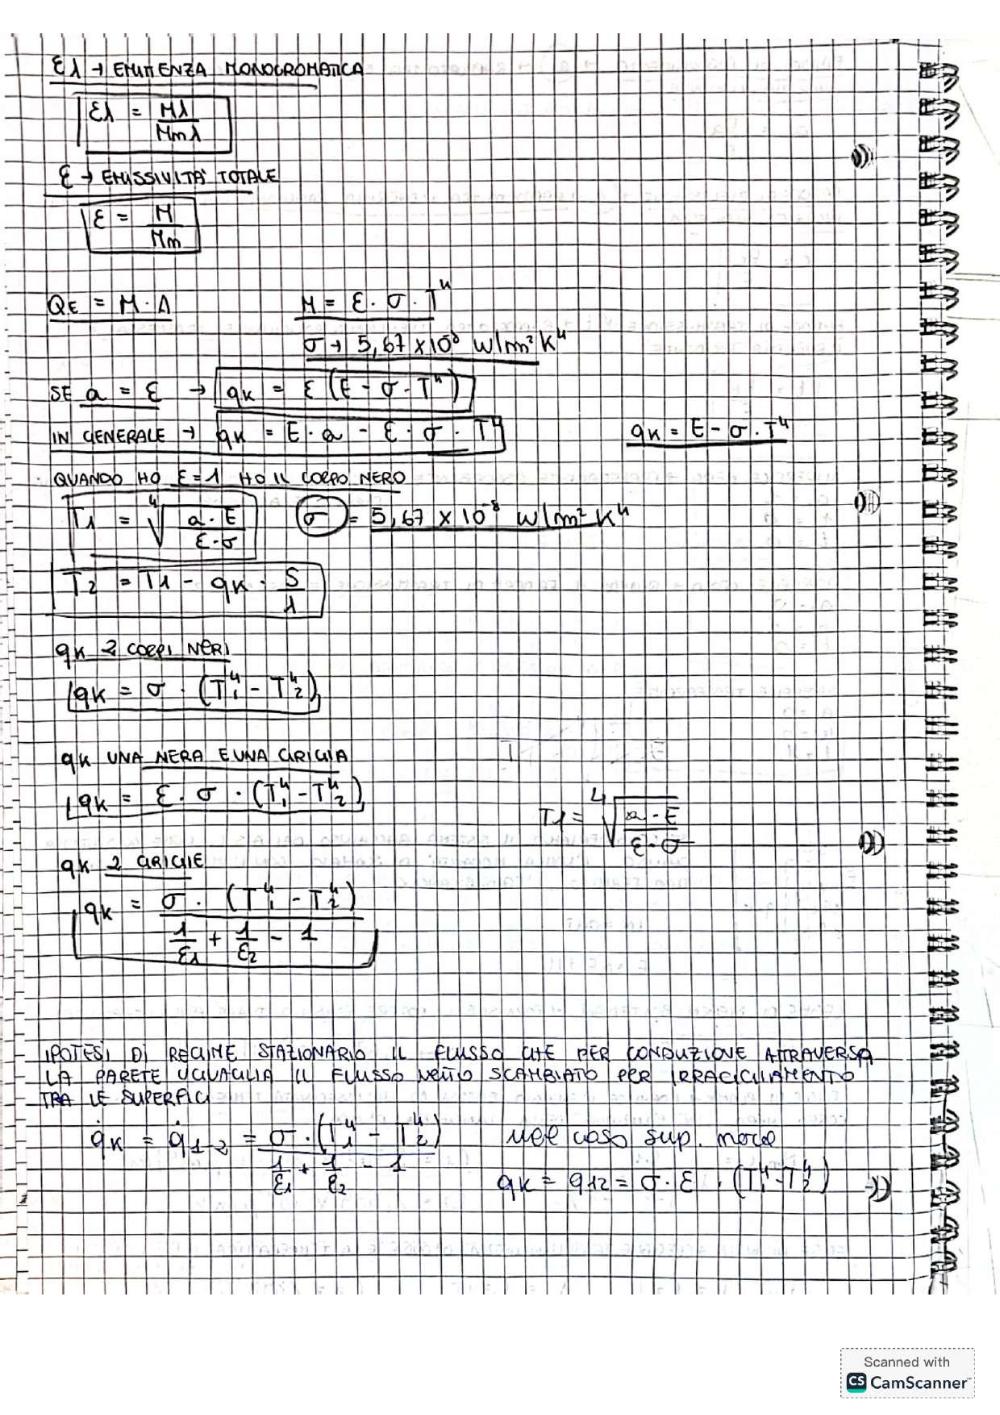 ελ → EMITTENZA MONOCROMATICA
ελ = Mλ / Mmλ
ε → EMISSIVITÀ TOTALE
ε = M / Mm
QE = M · A    M = ε · σ · T⁴
σ → 5,67 × 10⁸ W/m² K⁴
SE a = ε → qk = ε (E - σ · T⁴)
IN GENERALE → qk = E · a - ε · σ · T⁴    qk = E - σ · T⁴
QUANDO HO ε = 1 HO IL CORPO NERO
T1 = ⁴√(a · E / ε · σ)    σ = 5,67 × 10⁻⁸ W/m² K⁴
T2 = T1 - qk · S / λ
qk 2 CORPI NERI
qk = σ · (T₁⁴ - T₂⁴)
qk UNA NERA E UNA GRIGIA
qk = ε · σ · (T₁⁴ - T₂⁴)
T1 = ⁴√(a · E / ε · σ)
qk 2 GRIGIE
qk = σ · (T₁⁴ - T₂⁴) / (1/ε1 + 1/ε2 - 1)
IPOTESI DI REGIME STAZIONARIO IL FLUSSO CHE PER CONDUZIONE ATTRAVERSA
LA PARETE UGUAGLIA IL FLUSSO NETTO SCAMBIATO PER IRRAGGIAMENTO
TRA LE SUPERFICI
q̇k = q̇1-2 = σ · (T₁⁴ - T₂⁴) / (1/ε1 + 1/ε2 - 1)    nel caso sup. nere
qk = q12 = σ · ε · (T₁⁴ - T₂⁴)
Scanned with
CS CamScanner